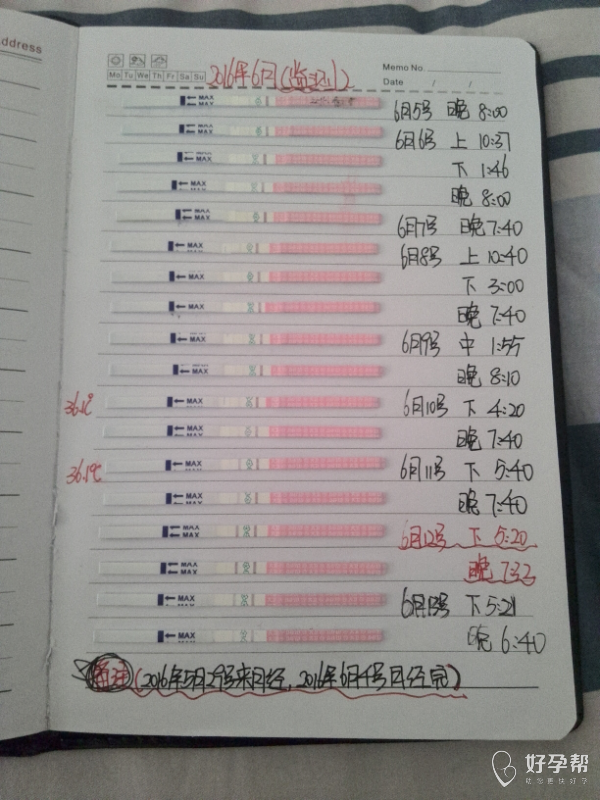 ddress
Mo Tu We Th Fr Sa Su
Memo No.
Date / /
2016年6月(监测)
MAX MAX 6月5号 晚 8:00
MAX MAX 6月6号 上 10:37
MAX MAX 下 1:46
MAX 晚 8:00
MAX MAX 6月7号 晚 7:40
MAX 6月8号 上 10:40
MAX 下 3:00
MAX 晚 7:40
MAX 6月9号 中 1:55
MAX 晚 8:10
36.1℃ MAX 6月10号 下 4:20
MAX 晚 7:40
36.1℃ MAX 6月11号 下 5:40
MAX 晚 7:40
MAX MAX 6月12号 下 5:20
MAX 晚 7:32
MAX 6月13号 下 5:21
MAX 晚 6:40
(2016年5月29号来月经,2016年6月4号月经完)
好孕帮
助您更快好孕